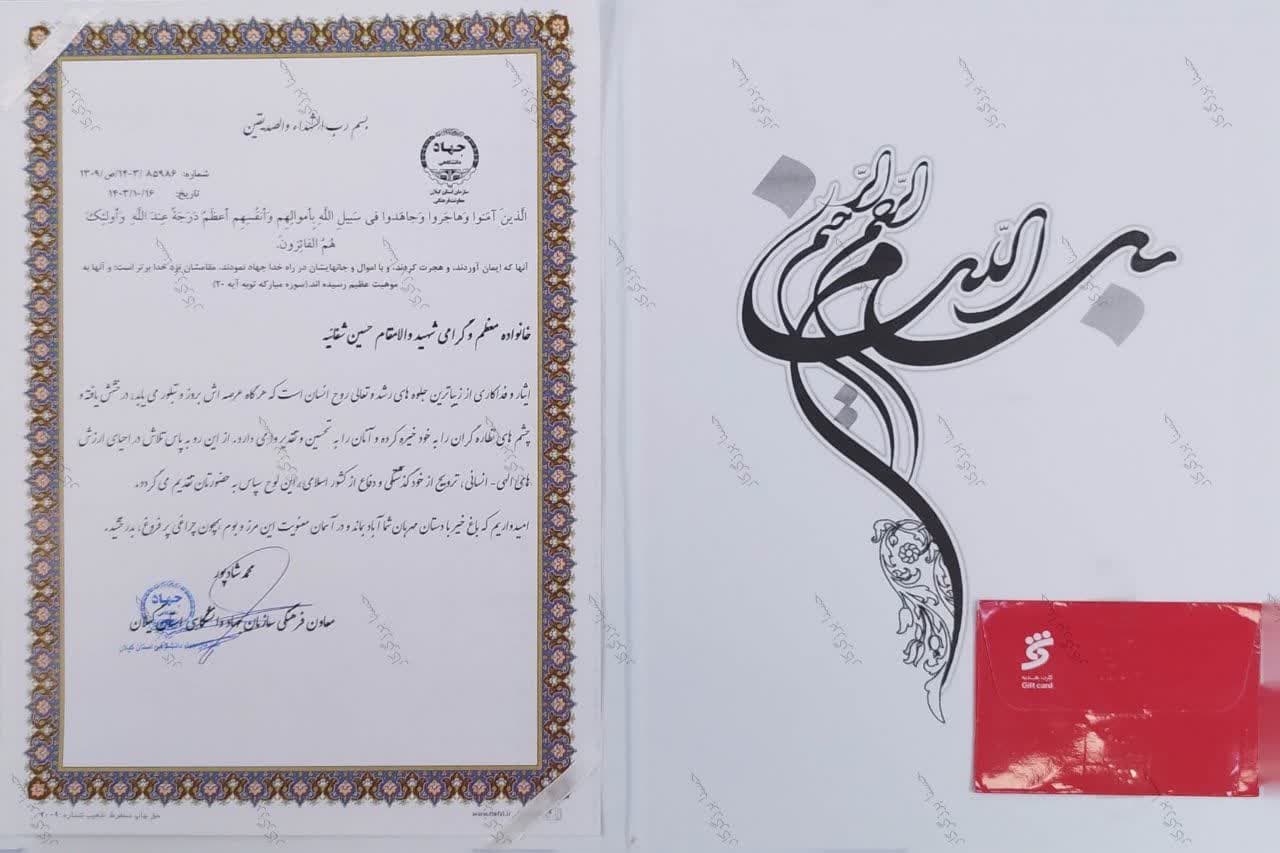 بسم رب الشهداء والصدیقین
جهاد
دانشگاهی
سازمان استان گیلان
معاونت فرهنگی
شماره: ۱۴۰۳/ ۸۵۹۸۶/ص/۱۳۰۹
تاریخ: ۱۴۰۳/۱۰/۱۶
الَّذینَ آمَنُوا وَهاجَروا وَجاهَدوا فی سَبیلِ اللَّهِ بِأَموالِهِم وَأَنفُسِهِم أَعظَمُ دَرَجَةً عِندَ اللَّهِ وَأُولئِكَ
هُمُ الفائِزونَ.
آنها که ایمان آوردند، و هجرت کردند، و با اموال و جانهایشان در راه خدا جهاد نمودند، مقامشان نزد خدا برتر است؛ و آنها به
موهبت عظیم رسیده اند.(سوره مبارکه توبه آیه ۲۰)
خانواده معظم و گرامی شهید والامقام حسین شفائیه
ایثار و فداکاری از زیباترین جلوه های رشد و تعالی روح انسان است که هرگاه عرصه اش بروز و تبلور می یابد، درخشش یافته و
چشم های نظاره گران را به خود خیره کرده و آنان را به تحسین و تقدیر وامی دارد. از این رو به پاس تلاش در احیای ارزش
های الهی- انسانی، ترویج از خود گذشتگی و دفاع از کشور اسلامی، این لوح سپاس به حضورتان تقدیم می گردد.
امیدواریم که باغ خیر با دستان مهربان شما آباد بماند و در آسمان معنویت این مرز و بوم همچون چراغی پر فروغ، بدرخشید.
محمد شادپور
معاون فرهنگی سازمان جهاد دانشگاهی استان گیلان
جهاد
بسم الله الرحمن الرحیم
کارت هدیه
Gift card